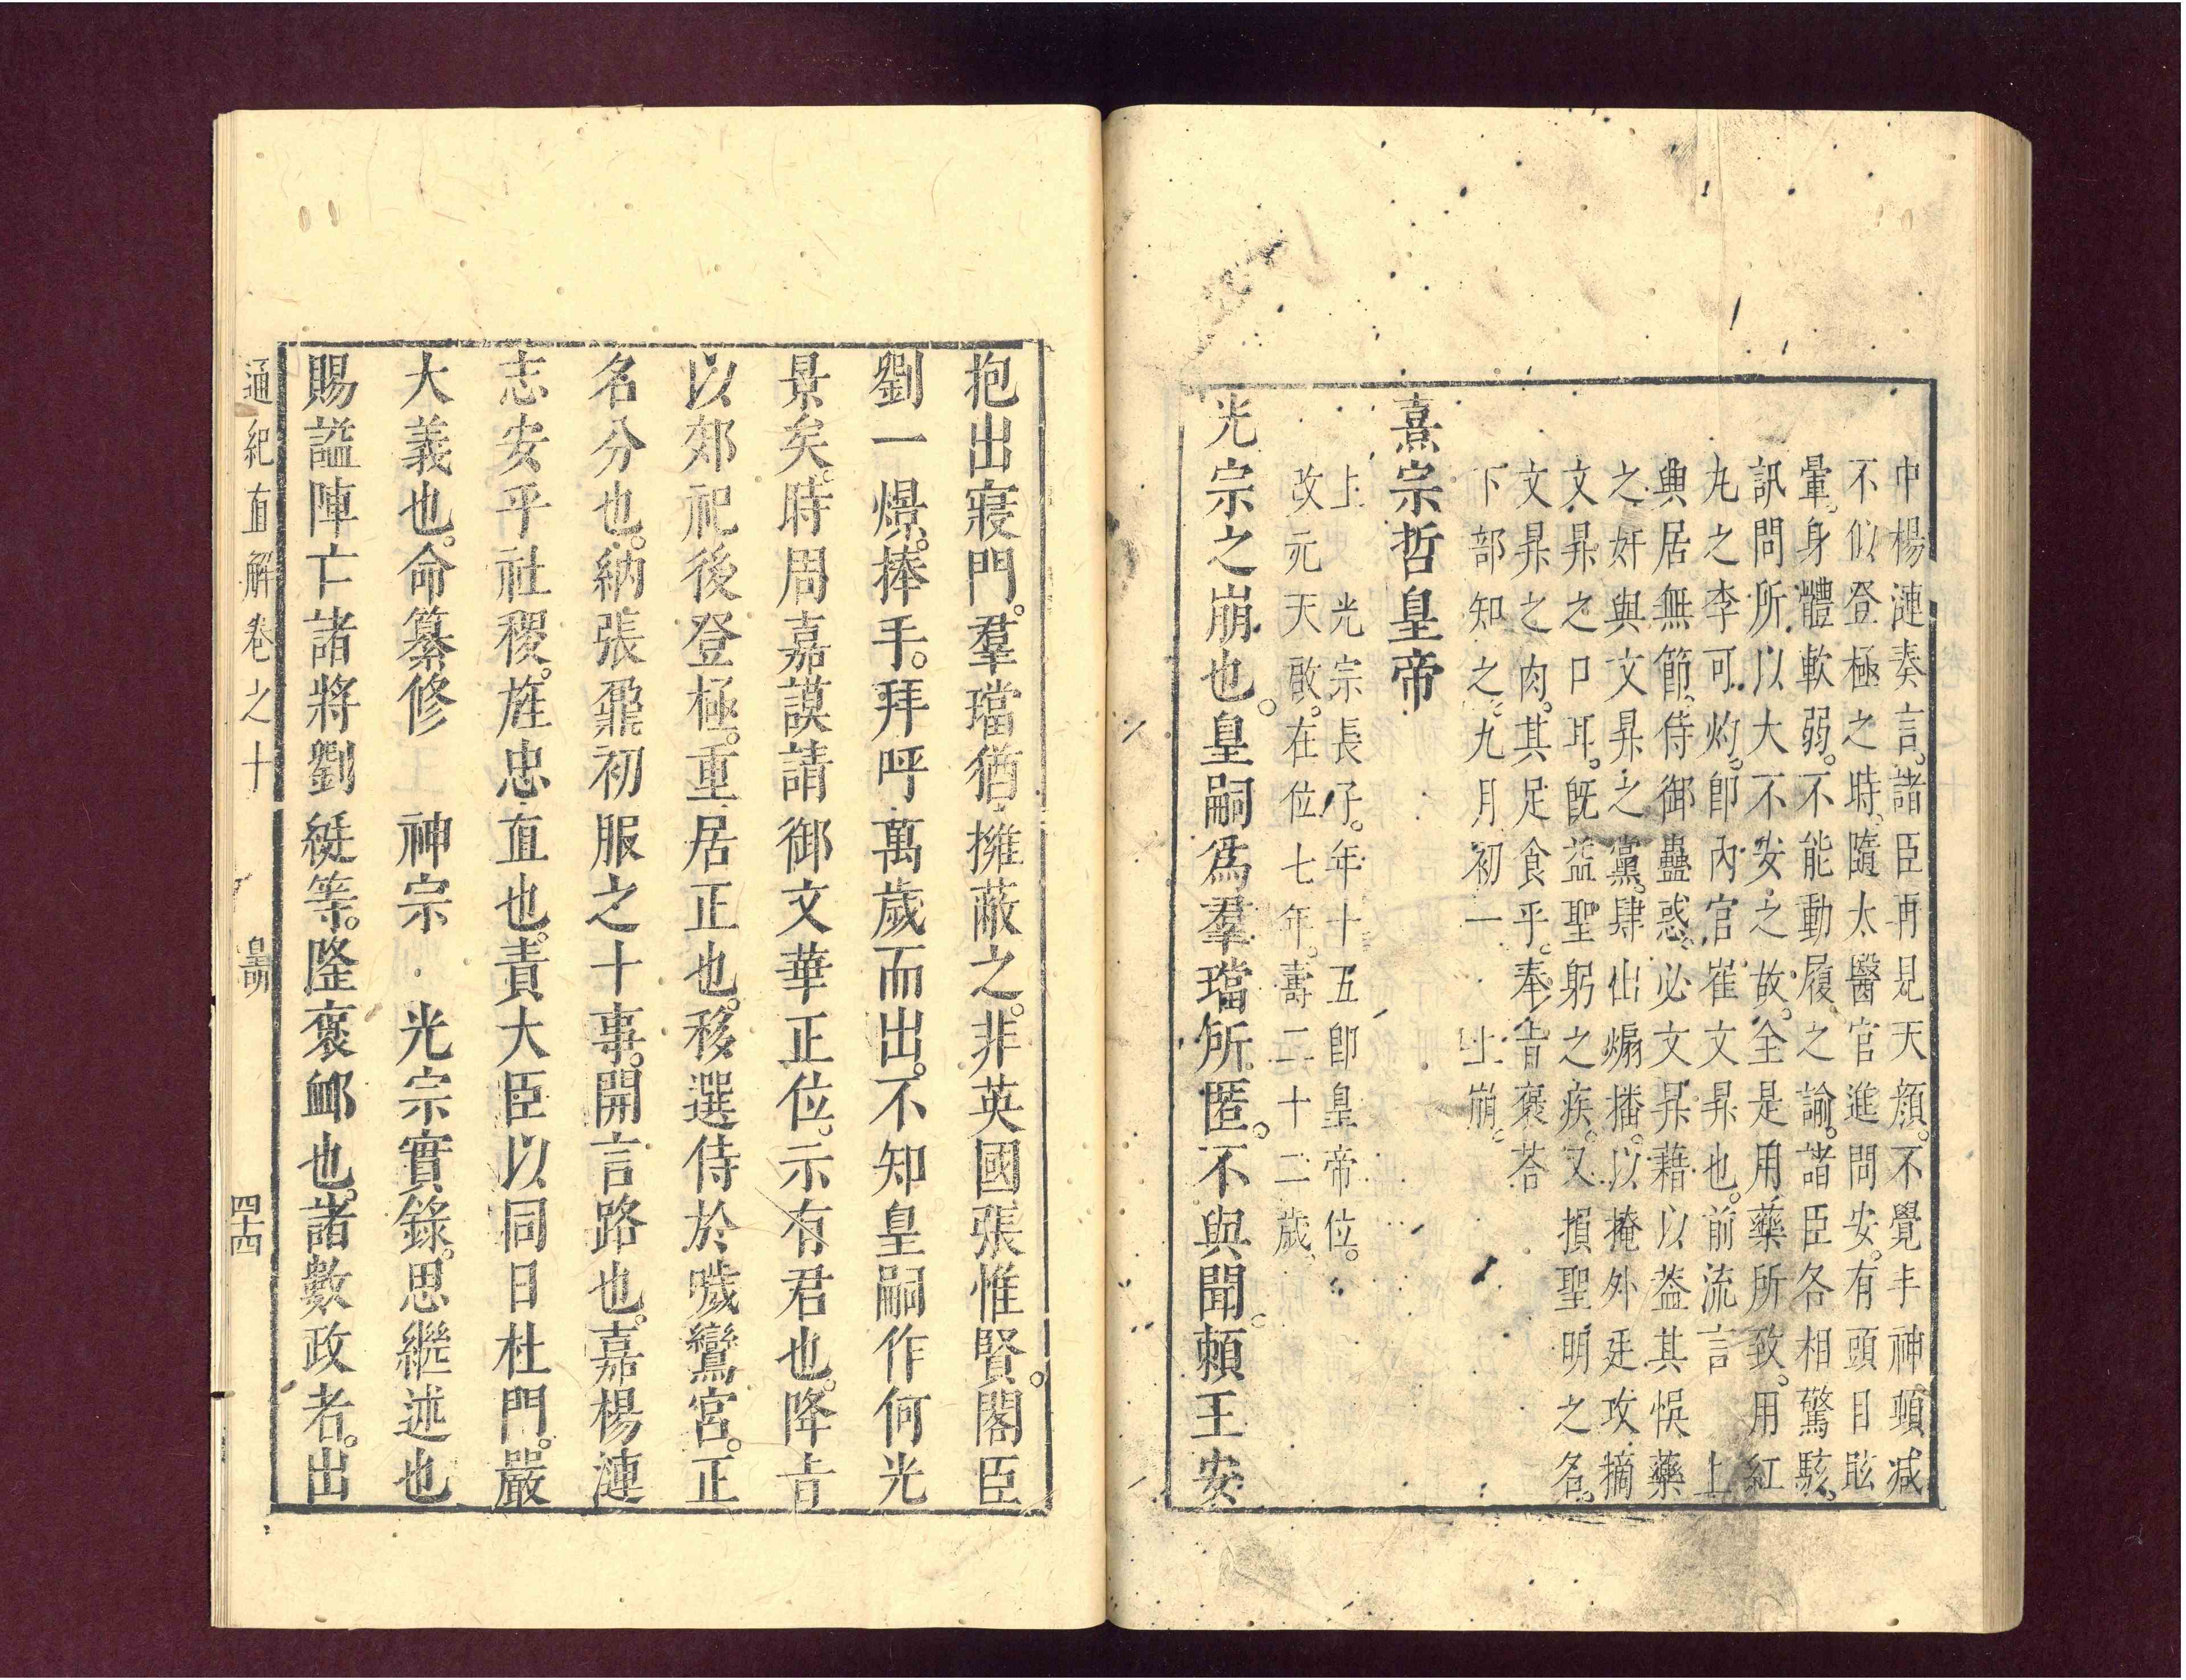 中楊漣奏言。諸臣再見天顏。不覺丰神頓減
不似登極之時。隨太醫官進問安。有頭目眩
暈。身體軟弱。不能動履之諭。諸臣各相驚駭。
訊問所以大不安之故。全是用藥所致。用紅
丸之李可灼。卽內官崔文昇也。前流言 上
典居無節。侍御蠱惑。必文昇藉以葢其悞藥
之奸與文昇之黨。肆出煽播。以掩外廷攻摘
文昇之口耳。旣益聖躬之疾。又損聖明之名。
文昇之肉。其足食乎。奉旨褒荅
下部知之。九月初一 上崩。
熹宗哲皇帝
上 光宗長子。年十五卽皇帝位。
改元天啟。在位七年。壽二十二歲。
光宗之崩也。皇嗣爲羣璫所匿。不與聞。頼王安
抱出寢門。羣璫猶擁蔽之。非英國張惟賢。閣臣
劉一燝。捧手。拜呼萬歲而出。不知皇嗣作何光
景矣。時周嘉謨請御文華正位。示有君也。降旨
以郊祀後登極。重居正也。移選侍於噦鸞宮。正
名分也。納張鼐初服之十事。開言路也。嘉楊漣
志安乎社稷。旌忠直也。責大臣以同日杜門。嚴
大義也。命纂修 神宗 光宗實錄。思繼述也
賜謚陣亡諸將劉綎等。隆褒衈也。諸數政者。出
通紀直解卷之十 皇明 四十四